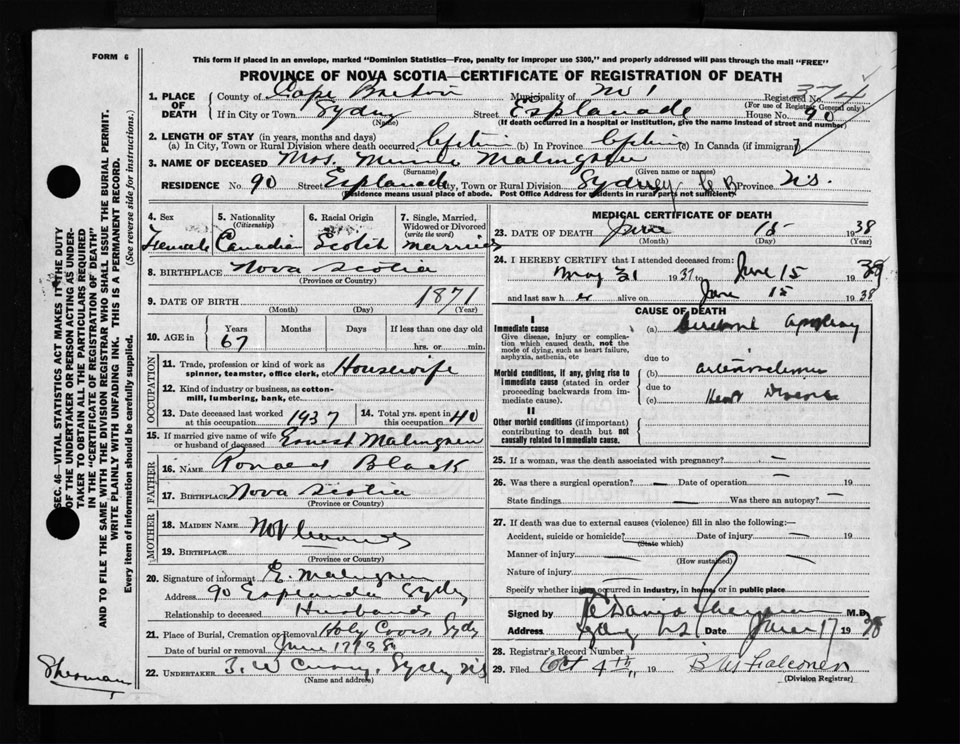 FORM 6
This form if placed in an envelope, marked "Dominion Statistics—Free, penalty for improper use $300," and properly addressed will pass through the mail "FREE"
PROVINCE OF NOVA SCOTIA—CERTIFICATE OF REGISTRATION OF DEATH
1. PLACE OF DEATH
County of Cape Breton Municipality of No 1 Registered No. 374
(For use of Registrar General only)
If in City or Town Sydney Street Esplanade House No. 90
(Name) (If death occurred in a hospital or institution, give the name instead of street and number)
2. LENGTH OF STAY (in years, months and days)
(a) In City, Town or Rural Division where death occurred Lifetime (b) In Province Lifetime (c) In Canada (if immigrant)
3. NAME OF DECEASED Mrs. Minnie Malmgren
(Surname) (Given name or names)
RESIDENCE No. 90 Street Esplanade City, Town or Rural Division Sydney C B Province N.S.
(Residence means usual place of abode. Post Office Address for residents in rural parts not sufficient)
4. Sex Female
5. Nationality (Citizenship) Canadian
6. Racial Origin Scotch
7. Single, Married, Widowed or Divorced (write the word) married
8. BIRTHPLACE Nova Scotia
(Province or Country)
9. DATE OF BIRTH 1871
(Month) (Day) (Year)
10. AGE in Years Months Days If less than one day old
67 hrs. or min.
OCCUPATION
11. Trade, profession or kind of work as spinner, teamster, office clerk, etc. Housewife
12. Kind of industry or business, as cotton-mill, lumbering, bank, etc.
13. Date deceased last worked at this occupation 1937
14. Total yrs. spent in this occupation 40
15. If married give name of wife or husband of deceased Ernest Malmgren
FATHER
16. NAME Ronald Black
17. BIRTHPLACE Nova Scotia
(Province or Country)
MOTHER
18. MAIDEN NAME Not
19. BIRTHPLACE
(Province or Country)
20. Signature of informant E. Malmgren
Address 90 Esplanade Sydney
Relationship to deceased Husband
21. Place of Burial, Cremation or Removal Holy Cross, Sydney
Date of burial or removal June 17 1938
22. UNDERTAKER Sydney N.S.
(Name and address)
MEDICAL CERTIFICATE OF DEATH
23. DATE OF DEATH June 15 1938
(Month) (Day) (Year)
24. I HEREBY CERTIFY that I attended deceased from:
May 31 1937 to June 15 1938
and last saw her alive on June 15 1938
CAUSE OF DEATH
I
Immediate cause
Give disease, injury or complication which caused death, not the mode of dying, such as heart failure, asphyxia, asthenia, etc
(a) Cerebral apoplexy
due to
Morbid conditions, if any, giving rise to immediate cause (stated in order proceeding backwards from immediate cause).
(b) arteriosclerosis
due to
(c) Heart Disease
II
Other morbid conditions (if important) contributing to death but not causally related to immediate cause.
25. If a woman, was the death associated with pregnancy? —
26. Was there a surgical operation? — Date of operation — 19
State findings — Was there an autopsy? —
27. If death was due to external causes (violence) fill in also the following:—
Accident, suicide or homicide? (State which) Date of injury — 19
Manner of injury — (How sustained)
Nature of injury —
Specify whether injury occurred in industry, in home, or in public place
Signed by M.D.
Address Sydney N.S. Date June 17 1938
28. Registrar's Record Number
29. Filed Oct 4th, 19 Falconer
(Division Registrar)
SEC. 46—VITAL STATISTICS ACT MAKES IT THE DUTY
OF THE UNDERTAKER OR PERSON ACTING AS UNDER-
TAKER TO OBTAIN ALL THE PARTICULARS REQUIRED
IN THE "CERTIFICATE OF REGISTRATION OF DEATH"
AND TO FILE THE SAME WITH THE DIVISION REGISTRAR WHO SHALL ISSUE THE BURIAL PERMIT.
WRITE PLAINLY WITH UNFADING INK. THIS IS A PERMANENT RECORD.
Every item of information should be carefully supplied. (See reverse side for instructions.)
Sherman